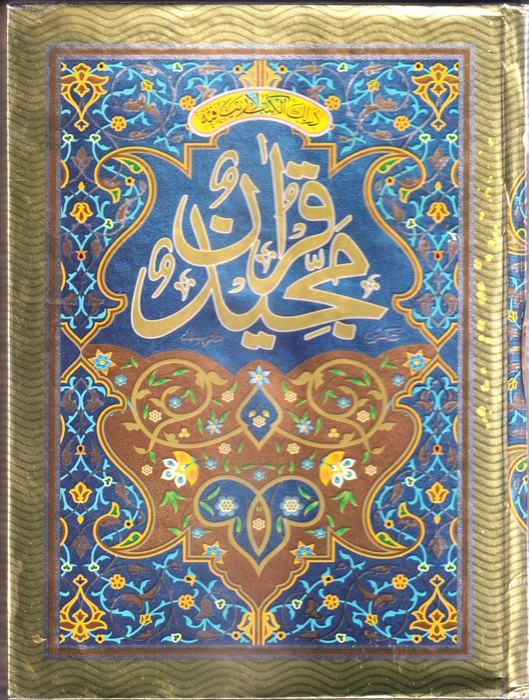 ذلك الكتب لا ريب فيه
قرآن
مجيد